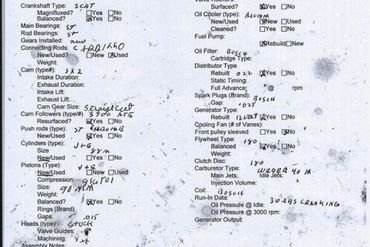 Crankshaft Type: SCAT
Magnufluxed? Yes No
Balanced? Yes No
Main Bearings: ST
Rod Bearings: ST
Gears Installed: new
Connecting Rods: CARRILLO
New/Used? New Used
Weight:
Cam(type#)
Intake Duration:
Exhaust Duration:
Intake Lift:
Exhaust Lift:
Cam Gear Size: Straight cut
Cam Followers (type#)
Resurfaced? Yes No
Push rods (type) ST
New/Used Yes No
Cylinders (type) J+E
Size:
New/Used Yes No
Pistons (Type) J+E
New/Used Yes No
Compression:
Size:
Weight:
Balanced? Yes No
Rings (Brand)
Gaps: .015
Heads (type) STOCK
Valve Guides:
Machining:
Assembly Notes:
Surfaced? Yes No
Oil Cooler (type):
New/Used New Used
Cleaned? Yes No
Fuel Pump:
Rebuild New
Oil Filter: Bosch
Cartridge Type:
Distributor Type
Rebuild Yes No
Static Timing:
Full Advance: @ rpm
Spark Plugs (Brand):
Bosch
Gap: .025
Generator Type:
Rebuilt Yes No
Cooling Fan (# of Vanes):
Front pulley sleeved Yes No
Flywheel Type: 180
Balanced? Yes No
Weight:
Clutch Disc: 180
Carburetor Type: WEBER 40
Main Jets: Idle Jets:
Injection Volume:
Coil: Bosch
Run-In Data:
Oil Pressure @ Idle:
Oil Pressure @ 3000 rpm:
Generator Output: